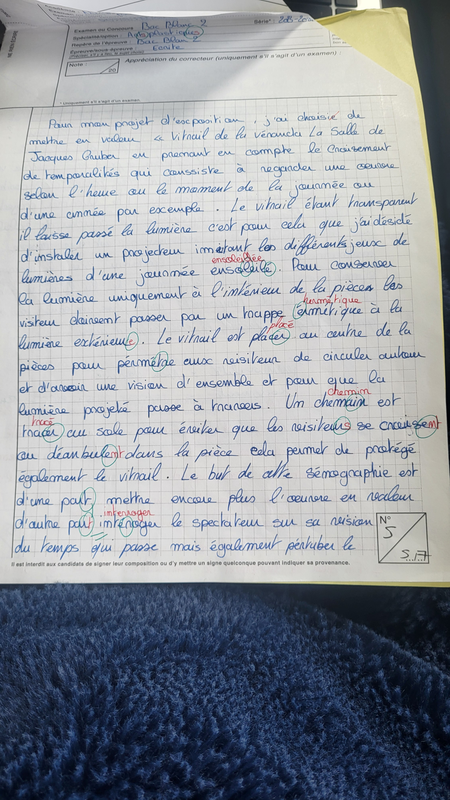 Examen ou Concours Bac Blanc 2
Série*
Spécialité/option : Arts plastiques
Repère de l'épreuve : Bac Blanc 2
Epreuve/sous-épreuve : Ecrite
Note :
20
Appréciation du correcteur (uniquement s'il s'agit d'un examen) :
* Uniquement s'il s'agit d'un examen.
Pour mon projet d'exposition, j'ai choisie de
mettre en valeur Vitrail de la véranda La Salle de
Jacques Gruber en prenant en compte le Croisement
de temporalités qui conssiste à regarder une œuvre
selon l'heure ou le moment de la journée ou
d'une année par exemple. Le vitrail étant transparent
il laisse passé la lumière c'est pour cela que j'ai décidé
d'instaler un projecteur imitant les différents jeux de
ensoleillée
lumières d'une journée ensoleilé. Pour conserver
la lumière uniquement à l'intérieur de la pièces les
hermétique
visiteur doivent passer par un trappe ermitique à la
placé
lumière extérieure. Le vitrail est placer au centre de la
pièces pour pérmètre aux visiteur de circuler autour
et d'avoir une vision d'ensemble et pour que la
chemin
lumière projeté passe à travers. Un chemain est
tracé
tracer au sole pour éviter que les visiteurs se croissent
ou déanbulent dans la pièce cela permet de protégé
également le vitrail. Le but de cette sémographie est
d'une part, mettre encore plus l'œuvre en valeur
interroger
d'autre part intéroger le spectateur sur sa vision
du temps qui passe mais également pértuber le
N°
5
5../7
Il est interdit aux candidats de signer leur composition ou d'y mettre un signe quelconque pouvant indiquer sa provenance.